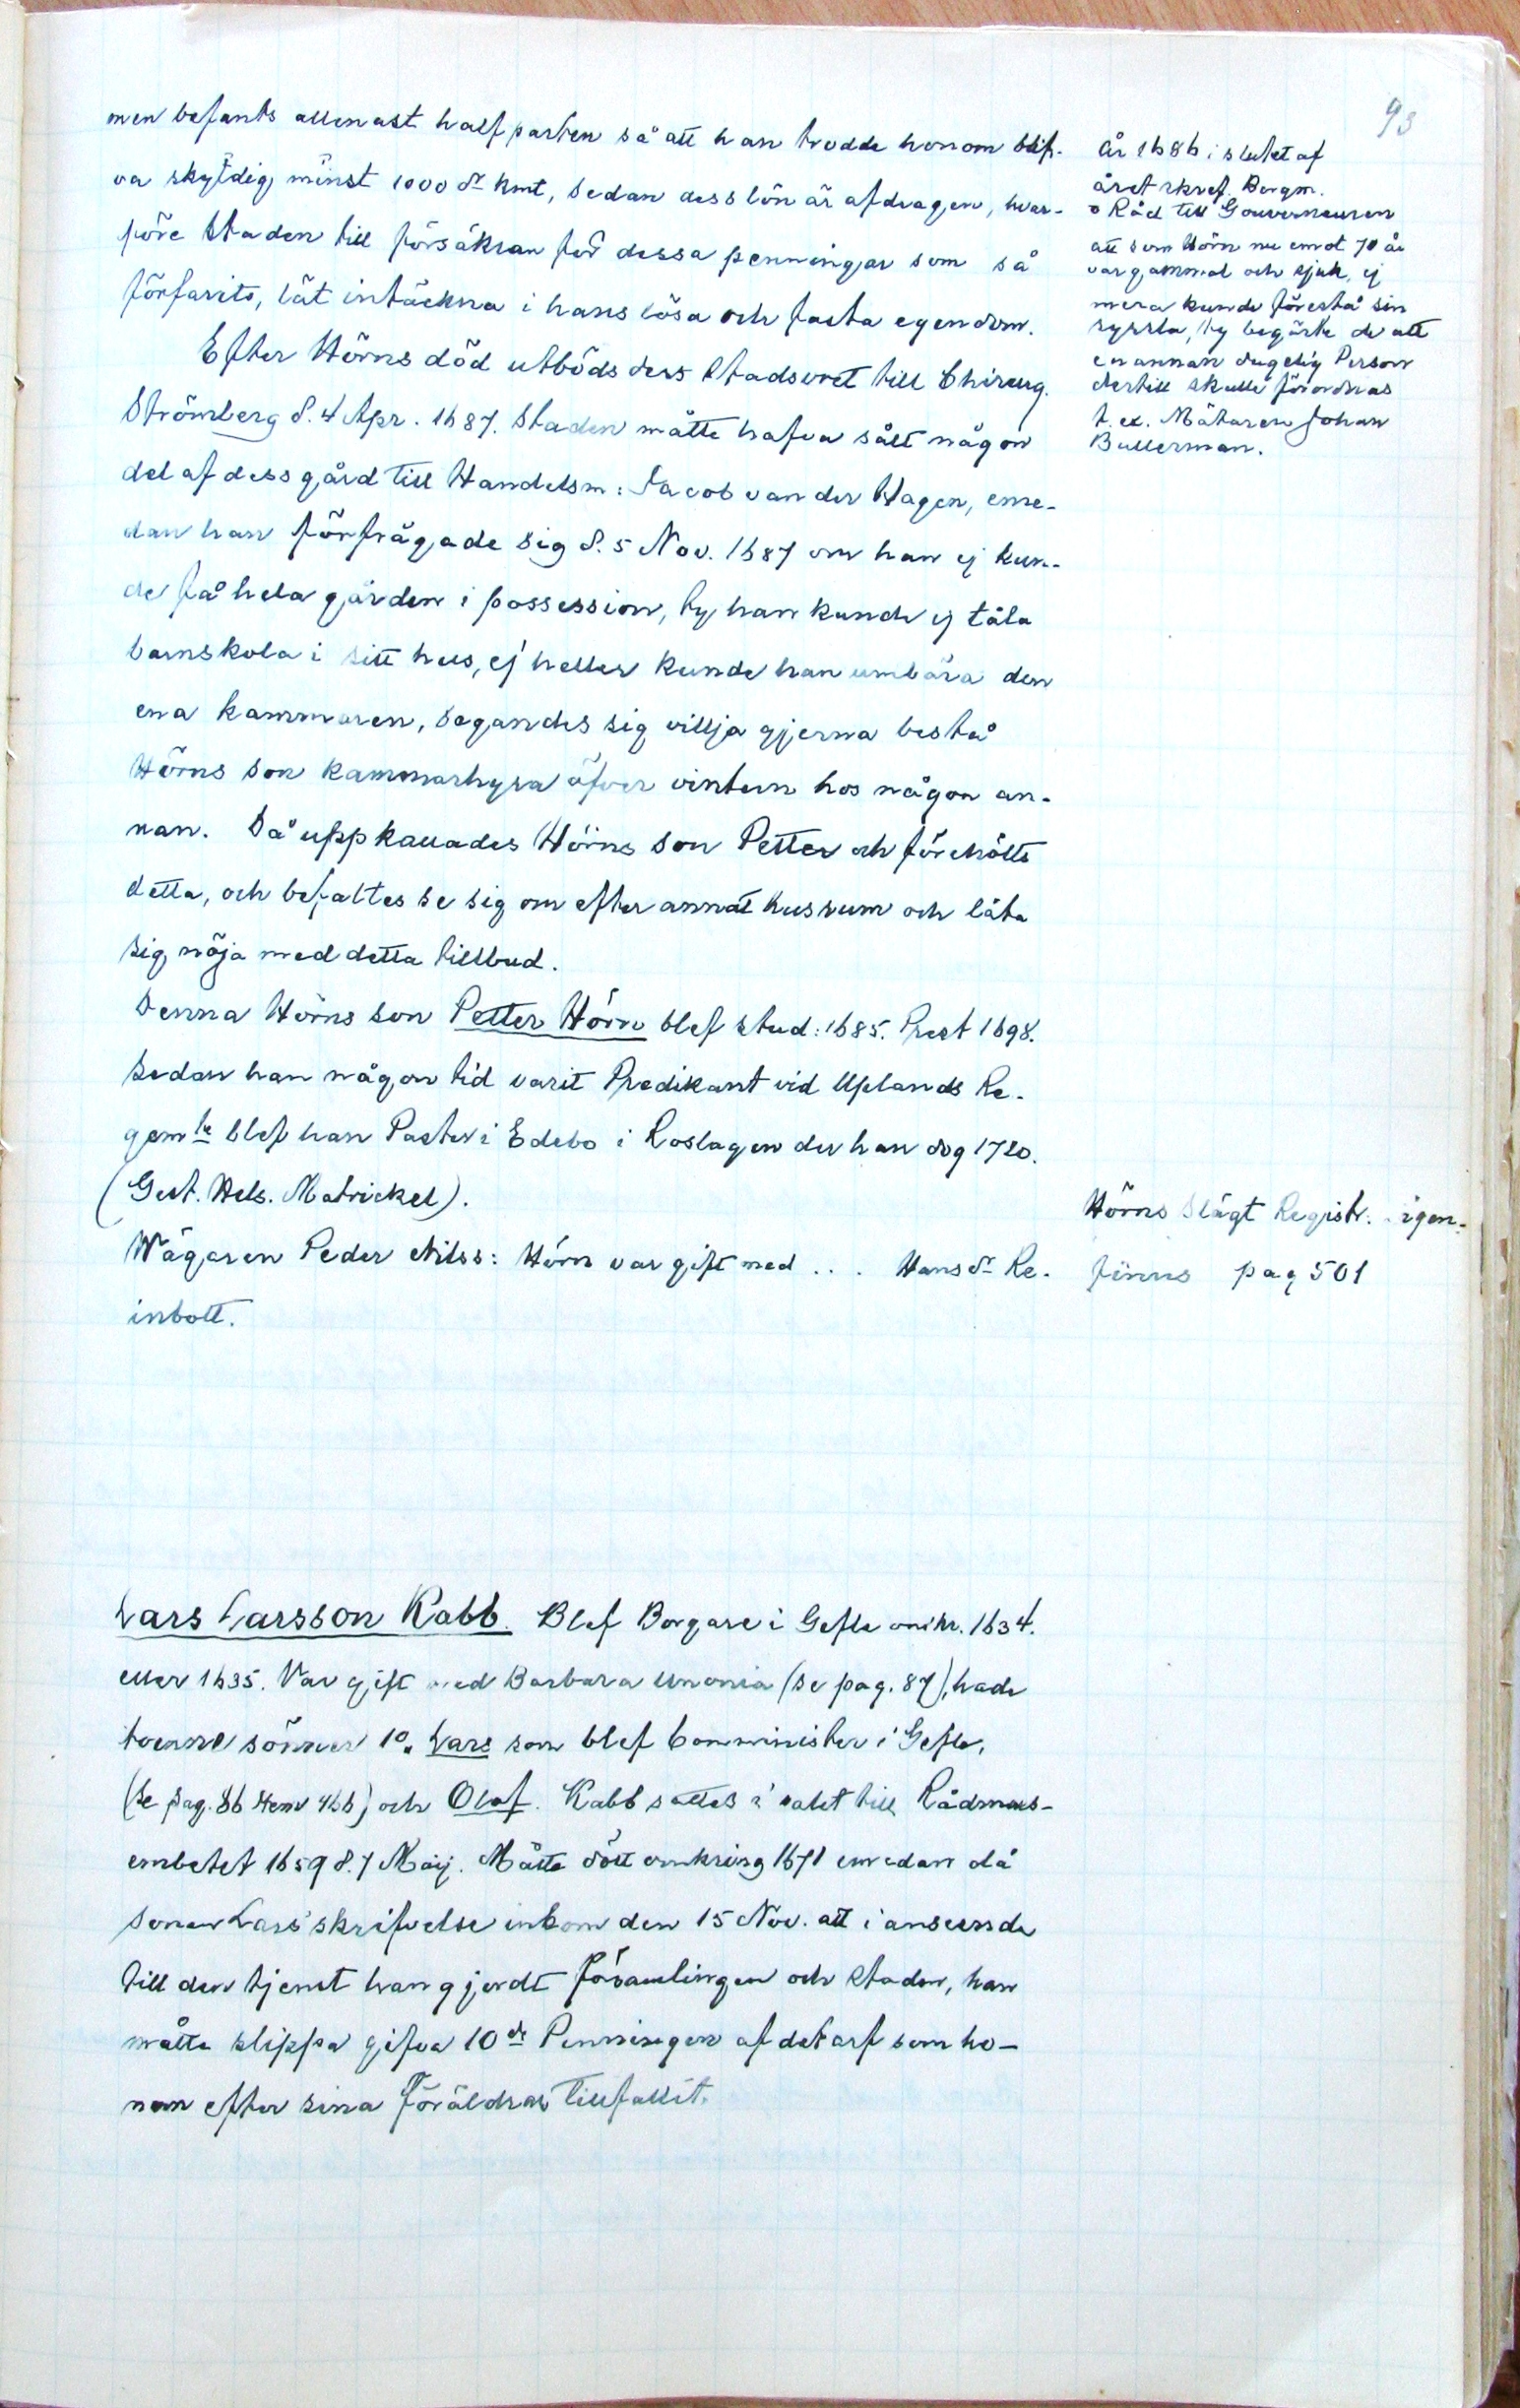 93
men befants allenast halfparten så att han trodde honom blif-
va skyldig minst 1000 dr kmt, sedan dess lön är afdragen, hvar-
före Staden till försäkran för dessa penningar som så
förfarits, lät intäckna i hans lösa och fasta egendom.
Efter Hörns död utböds dess Stadsuret till Chirurg.
Strömberg d. 4 Apr. 1687. Staden måtte hafva sålt någon
del af dess gård till Handelsm: Jacob van der Hagen, eme-
dan han förfrågade sig d. 5 Nov. 1687 om han ej kun-
de få hela gården i possession, ty han kunde ej tåla
barnskola i sitt hus, ej heller kunde han umbära den
ena kammaren, sägandes sig villja gjerna bestå
Hörns son kammarhyra öfver vintern hos någon an-
nan. Då uppkallades Hörns son Petter och förehölts
detta, och befaltes se sig om efter annat husrum och låta
sig nöja med detta tillbud.
Denna Hörns son Petter Hörn blef stud: 1685. Prest 1698.
Sedan han någon tid varit Predikant vid Uplands Re-
gem te blef han Pastor i Edebo i Roslagen der han dog 1720.
(Gest. Hels. Matrickel).
Wägaren Peder Nilss: Hörn var gift med ... Hans dr Re-
inbolt.
År 1686 i slutet af
året skref. Borgm.
o Råd till Gouverneuren
att som Hörn nu emot 70 år
var gammal och sjuk, ej
mera kunde förestå sin
syssla, ty begärte de att
en annan dugelig Person
dertill skulle förordnas
t. ex. Mätaren Johan
Bullerman.
Hörns Slägt Registr. igen-
finnes pag 501
Lars Larsson Kabb. Blef Borgare i Gefle omkr. 1634.
eller 1635. Var gift med Barbara Unonia (se pag. 87), hade
tvenne söner 1o. Lars som blef Comminister i Gefle,
(Se pag. 86 item 466) och Olof. Kabb sattes i valet till Rådmans-
embetet 1659 d. 7 Maij. Måtte dött omkring 1671 emedan då
sonen Lars' skrifvelse inkom den 15 Nov. att i anseende
till den tjenst han gjordt Församlingen och Staden, han
måtte slippa gifva 10 de Penningen af det arf som ho-
nom efter sina Föräldrar tillfallit.